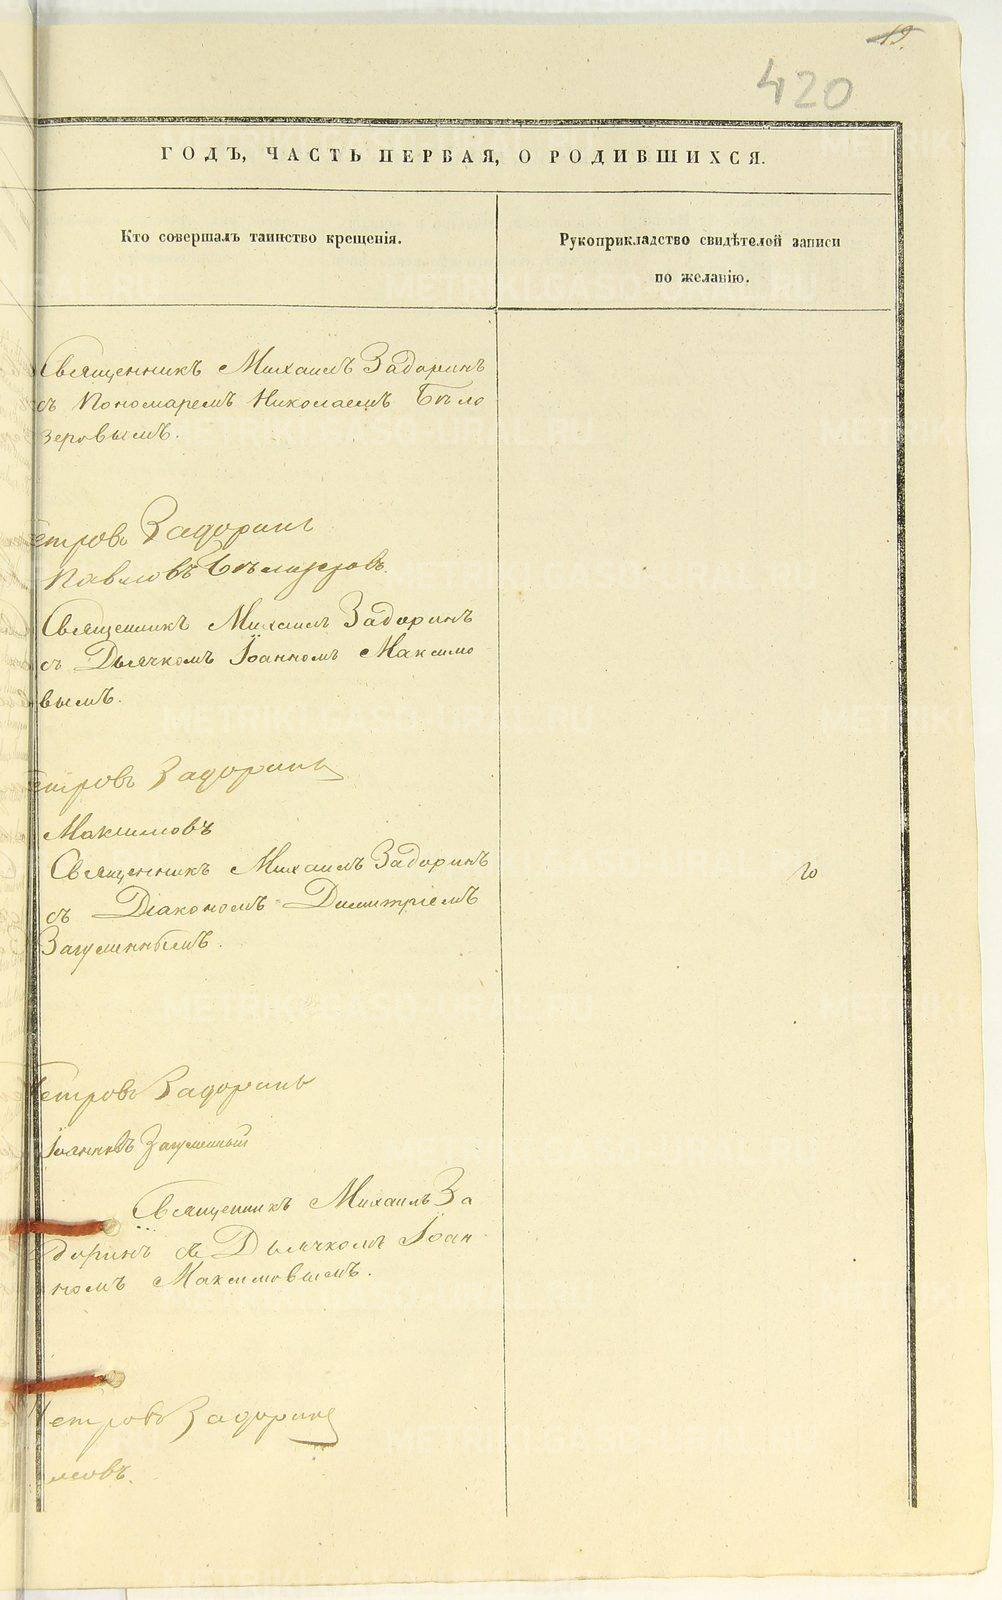 19.
420
ГОДЪ, ЧАСТЬ ПЕРВАЯ, О РОДИВШИХСЯ.
Кто совершалъ таинство крещенія.
Рукоприкладство свидѣтелой записи
по желанію.
Священникъ Михаилъ Задоринъ
съ Пономаремъ Николаемъ Бѣло
зеровымъ.
етровъ Задоринъ
Павловъ Бѣлозеровъ.
Священникъ Михаилъ Задоринъ
съ Дьячкомъ Іоанномъ Максимо
вымъ.
етровъ Задоринъ
Максимовъ
Священникъ Михаилъ Задоринъ
съ Діакономъ Димитріемъ
Загуменнымъ.
етровъ Задоринъ
Іоанновъ Загуменный
Священникъ Михаилъ За
доринъ съ Дьячкомъ Іоан
номъ Максимовымъ.
етровъ Задоринъ
мовъ.
METRIKI.GASO-URAL.RU